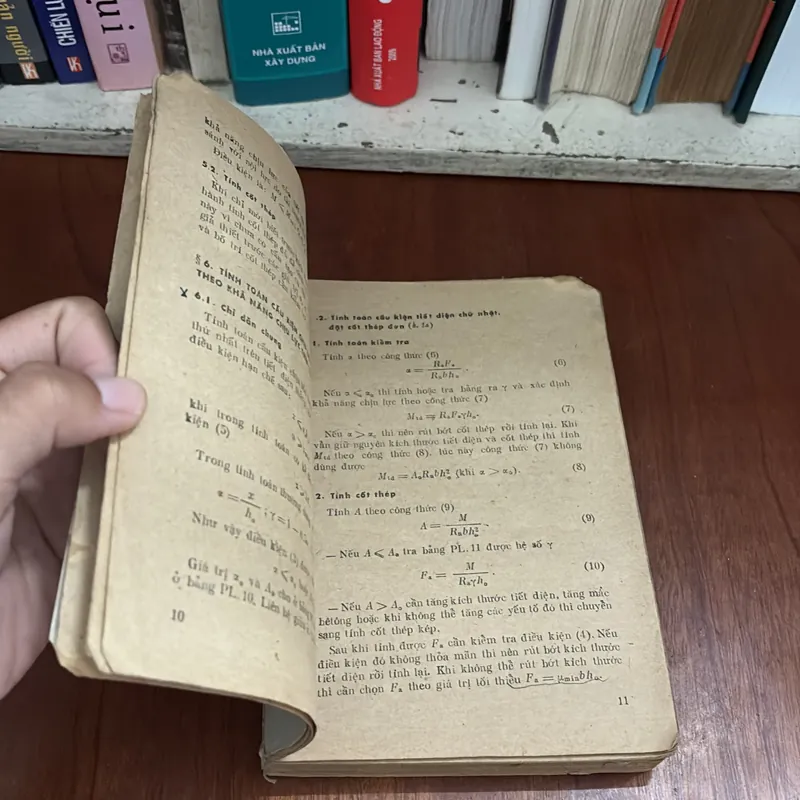 ản người
CHIẾN LƯ
ụi
NHÀ XUẤT BẢN
XÂY DỰNG
NHÀ XUẤT BẢN LAO ĐỘNG
khả năng chịu lực
sánh với nội lực do
Điều kiện là: M ⩽
5.2. Tính cốt thép
Khi chỉ mới biết
hành tính cốt thép
này vì chưa có
giả thiết trước các
và bố trí cốt thép
§ 6. TÍNH TOÁN CẤU KIỆN
THEO KHẢ NĂNG CHỊU LỰC
x 6.1. Chỉ dẫn chung
Tính toán cấu kiện
thứ nhất trên tiết diện
điều kiện hạn chế sau:
khi trong tính toán
kiện (5)
Trong tính toán thường dùng
α = x / h₀ ; γ = 1 –
Như vậy điều kiện (5)
Giá trị α₀ và A₀ cho ở
ở bảng PL.10. Liên hệ giữa
10
.2. Tính toán cấu kiện tiết diện chữ nhật,
đặt cốt thép đơn (h. 1a)
1. Tính toán kiểm tra
Tính α theo công thức (6)
α = RₐFₐ / Rₙbh₀ . (6)
Nếu α ⩽ α₀ thì tính hoặc tra bảng ra γ và xác định
khả năng chịu lực theo công thức (7)
Mtd = RₐFₐγh₀. (7)
Nếu α > α₀ thì nên rút bớt cốt thép rồi tính lại. Khi
vẫn giữ nguyên kích thước tiết diện và cốt thép thì tính
Mtd theo công thức (8). lúc này công thức (7) không
dùng được
Mtd = A₀Rₙbh₀² (khi α > α₀). (8)
2. Tính cốt thép
Tính A theo công thức (9)
A = M / Rₙbh₀² . (9)
— Nếu A ⩽ A₀ tra bảng PL. 11 được hệ số γ
Fₐ = M / Rₐγh₀ (10)
— Nếu A > A₀ cần tăng kích thước tiết diện, tăng mác
bêtông hoặc khi không thể tăng các yếu tố đó thì chuyển
sang tính cốt thép kép.
Sau khi tính được Fₐ cần kiểm tra điều kiện (4). Nếu
điều kiện đó không thỏa mãn thì nên rút bớt kích thước
tiết diện rồi tính lại. Khi không thể rút bớt kích thước
thì cần chọn Fₐ theo giá trị tối thiểu Fₐ = μminbh₀.
11